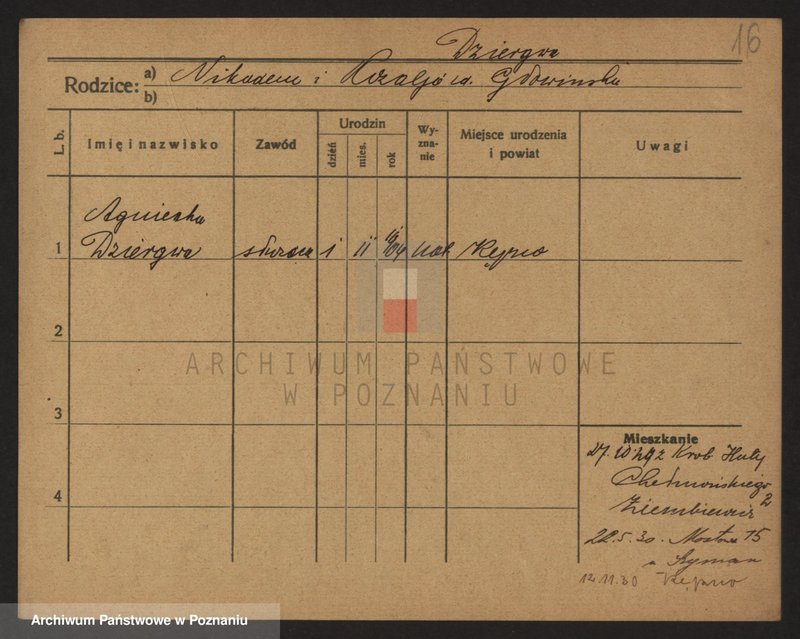 16
Dziergwa
Rodzice: a) Nikodem i Rozalja ur. Gdowinska
b)
L. b. Imię i nazwisko Zawód Urodzin dzień mies. rok Wy-zna-nie Miejsce urodzenia i powiat Uwagi
Agnieszka
1 Dziergwa służąca 1 II 1904 kat Kępno
2
ARCHIWUM PAŃSTWOWE
W POZNANIU
3
Mieszkanie
27.10.29 z
Chełmońskiego 2
4
22.5.30. Mostowa 15
12.11.30 Kępno
Archiwum Państwowe w Poznaniu